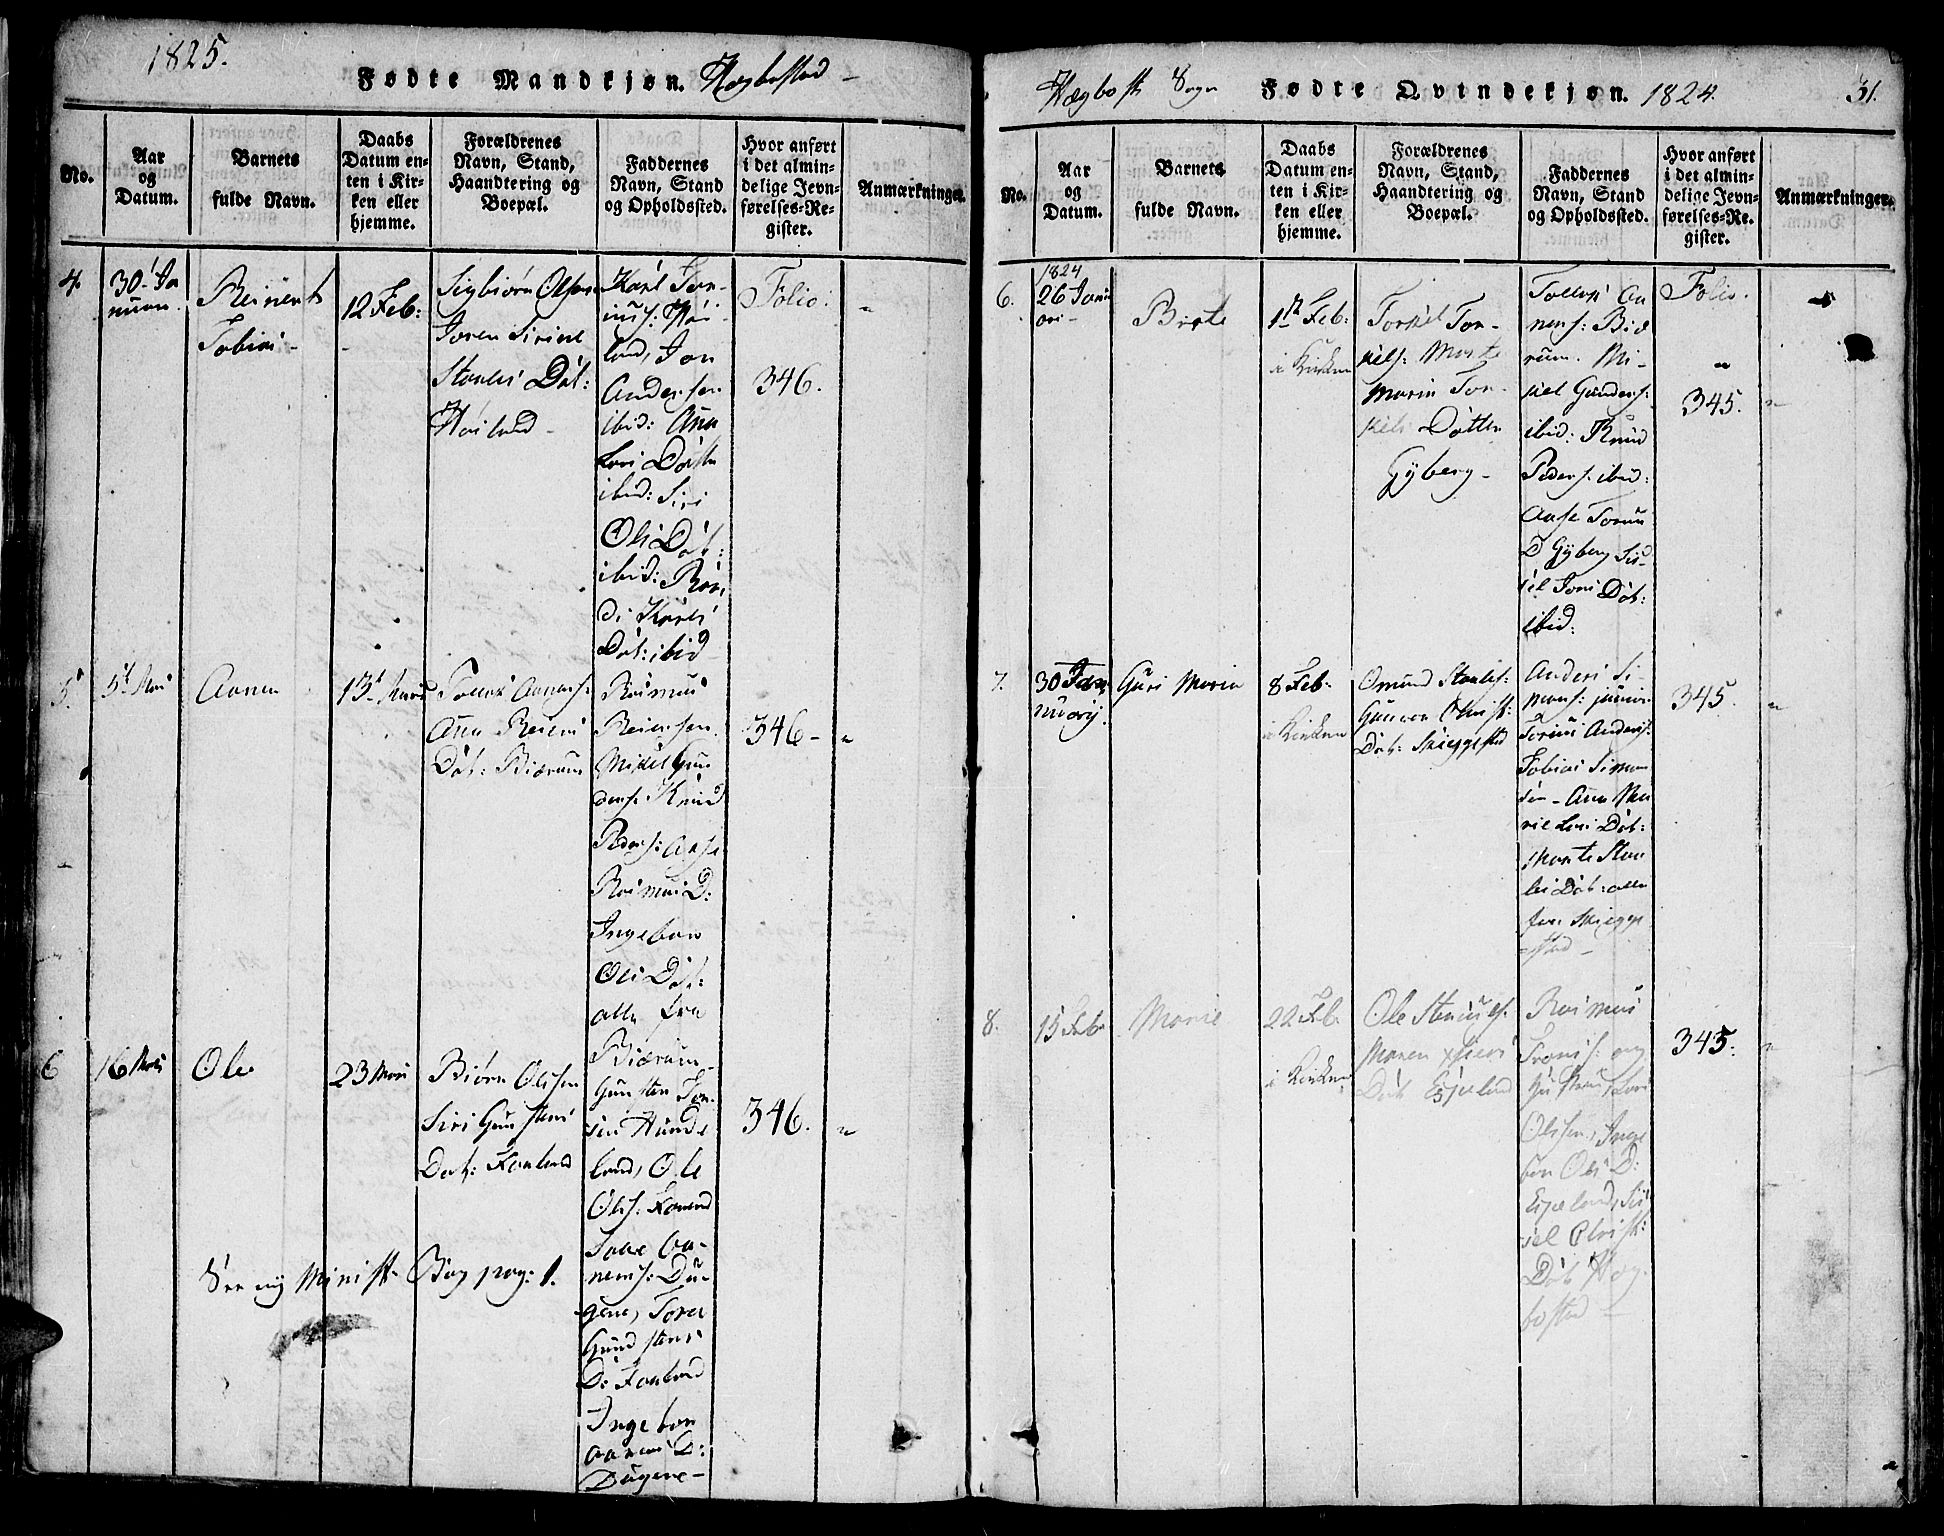 1825.
Fødte Mandkjøn. Hægbostad
No.
Aar
og
Datum.
Barnets
fulde Navn.
Daabs
Datum en-
ten i Kir-
ken eller
hjemme.
Forældrenes
Navn, Stand,
Haandtering og
Boepæl.
Faddernes
Navn, Stand
og Opholdssted.
Hvor anført
i det almin-
delige Jevn-
førelses-Re-
gister.
Anmærkninger.
4.
30 Ja
nuar.
Reinert
Tobias
12 Feb:
Sigbiørn Olsen
Joren Sirine
Staales Dat:
Høiland
Karl Jon-
Høi-
land, Jon
Andersen
ibid: Ana
Lars Datter
ibid: Siri
Ols Dat:
ibid: Ron,
di Karls
Dat: ibid
Folio:
346.
5.
5t Mars
Aanen
13t Mars
Tollak Aanens:
Ana Reiers
Dat: Biærum
Rasmus
Reiersen.
Mikel Gun
ders: Knud
Peders: Aase
Rasmus D:
Ingebor
Ols Dat:
alle fra
Biærum
346-
6
16 Mars
Ole
23 Mars
Biørn Olsen
Siri Gunstens
Dat: Foeland
Gunsten Jon
sen Hunde
land, Ole
Ols:
Aa-
nens: Du-
gene, Tore
Gundstens
D:
Ingebor
Aanens D:
Dugene-
346.
See ny Minist- Bog pag: 1.
Hægbost: Sogn Fødte Qvindekjøn. 1824.
31.
No.
Aar
og
Datum.
Barnets
fulde Navn.
Daabs
Datum en-
ten i Kir-
ken eller
hjemme.
Forældrenes
Navn, Stand,
Haandtering og
Boepæl.
Faddernes
Navn, Stand
og Opholdssted.
Hvor anført
i det almin-
delige Jevn-
førelses-Re-
gister.
Anmærkninger.
6.
1824
26 Janu
ari-
Birte
1st Feb:
i Kirken
Torkel Tor-
kels: Marte
Marie Tor-
kels Datter
Gyberg-
Tollak Aa
nens: Biæ
rum. Mi-
kel Gunders:
ibid: Knud
Peders: ibid:
Aase
D Gyberg Sis-
sel Jons Dat:
ibid:
Folio.
345.
7.
30 Ja
nuarij.
Guri Marie
8 Feb:
i Kirken
Omund Staales:
Gunvor Christ:
Dat: Skieggestad
Anders Si-
mons: junior
Anders:
Tobias Simon
sen- Ana Ma
rie Lars Dat:
Marte Staa
les Dat: alle
fra Skiegge
stad-
345.
8.
15 Feb
Marie
22 Feb.
i Kirken
Ole
Maren
Dat: Espeland
Rasmus
Olsen, Inge
bor Ols D:
Espeland, Sis
sel Christ:
Dat Hæg-
bostad-
345.